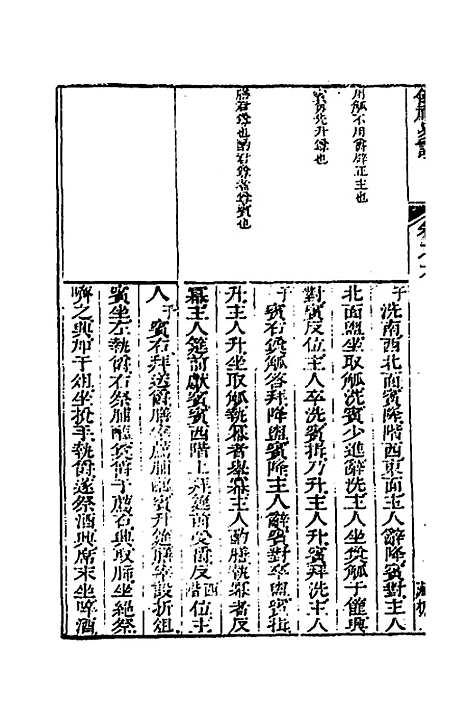 用觚不用爵辟正主也
賓每先升尊也
膳君尊也酌君尊者尊賓也
于洗南西北面賓降階西東面主人辭降賓對主人
北面盥坐取觚洗賓少進辭洗主人坐奠觚于篚興
對賓反位主人卒洗賓揖乃升主人升賓拜洗主人
于賓右奠觚答拜降盥賓降主人辭賓對卒盥賓揖
升主人升坐取觚執冪者舉冪主人酌膳執冪者反
冪主人筵前獻賓賓西階上拜筵前受爵反西階位主
人于賓右拜送爵膳宰薦脯醢賓升筵膳宰設折俎
賓坐左執爵右祭脯醢奠爵于薦右興取肺坐絕祭
嚌之興加于俎坐挩手執爵遂祭酒興席末坐啐酒